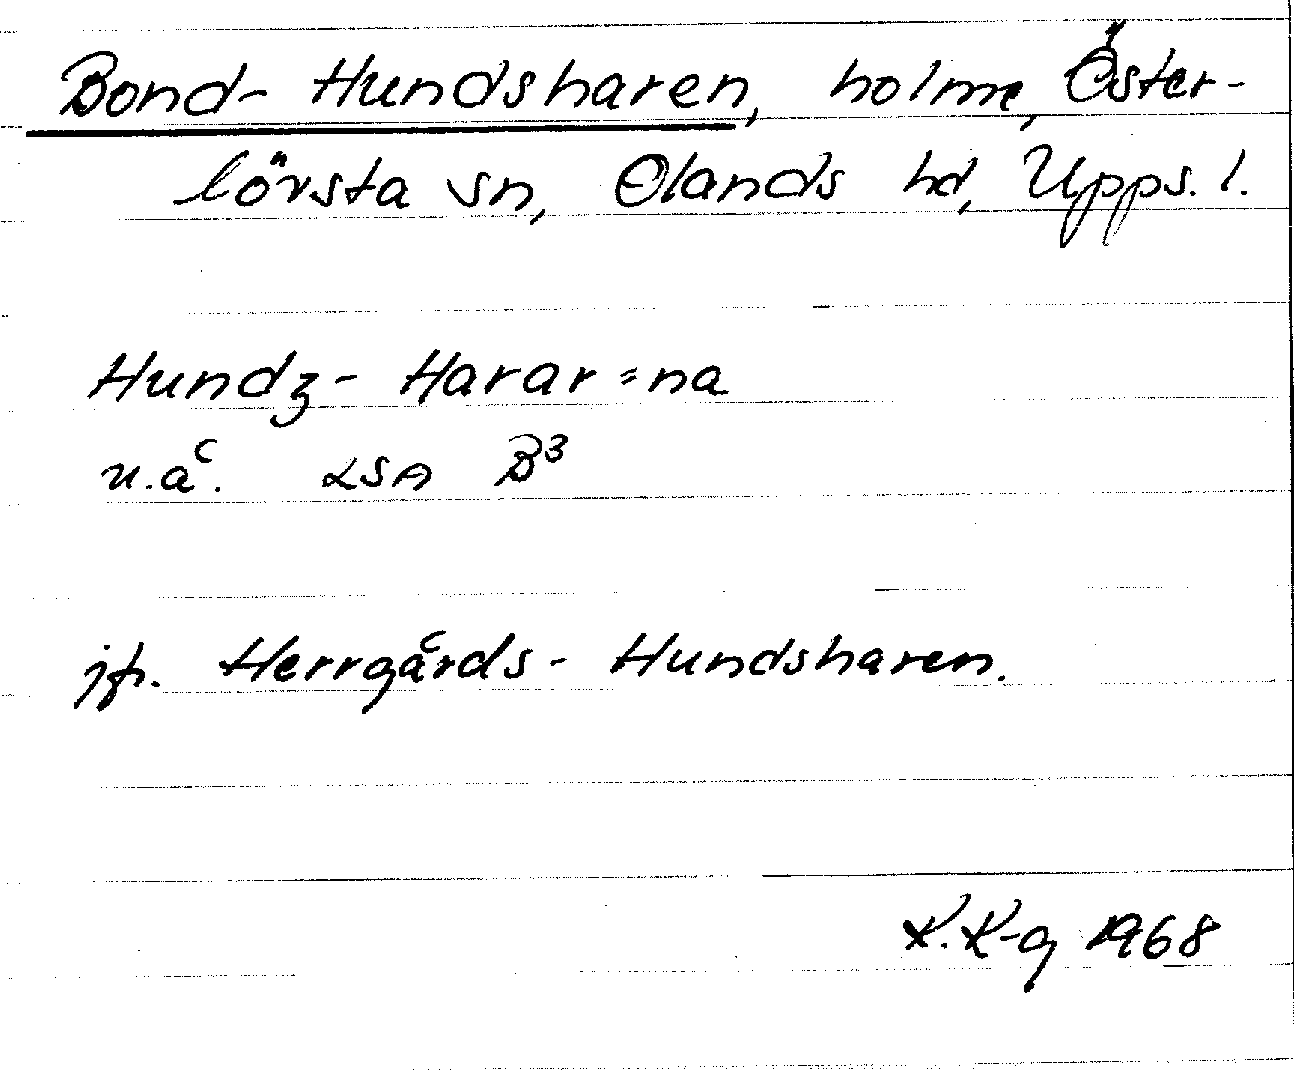 Bond- Hundsharen, holme, Öster-
lövsta sn, Olands hd, Upps. l.
Hundz- Harar=na
u.å. LSA B3
jfr. Herrgårds- Hundsharen.
K.K-g 1968